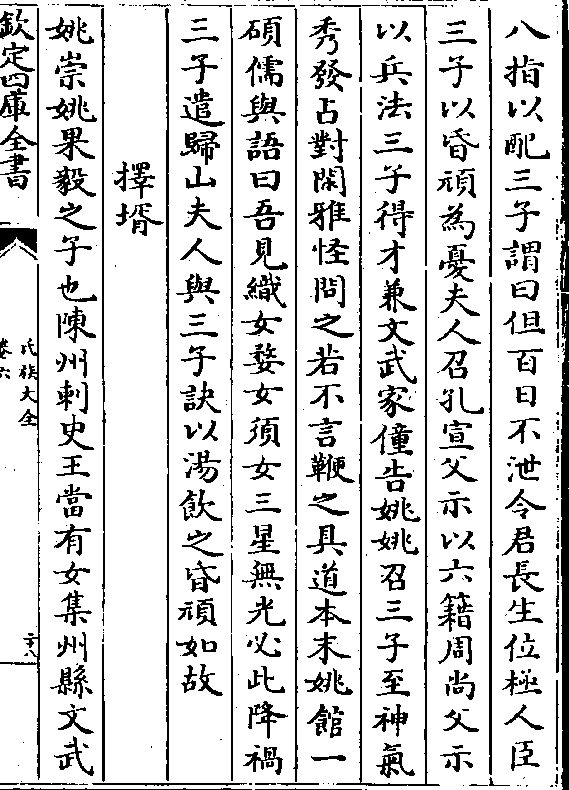 八指以配三子謂曰但百日不泄令君長生位極人臣
三子以昏頑為憂夫人召孔宣父示以六籍周尚父示
以兵法三子得才兼文武家僮告姚姚召三子至神氣
秀發占對閑雅怪問之若不言鞭之具道本末姚館一
碩儒與語曰吾見織女婺女須女三星無光必此降禍
三子遣歸山夫人與三子訣以湯飲之昏頑如故
擇壻
姚崇姚果毅之子也陳州刺史王當有女集州縣文武
欽定四庫全書
氏族大全
卷六
二十八